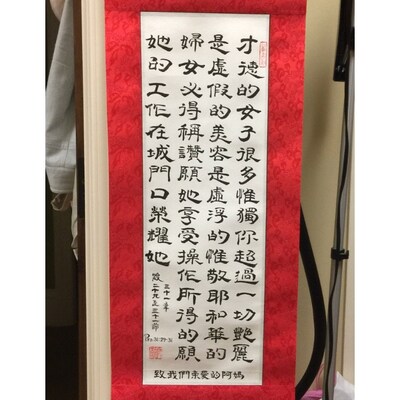 才德的女子很多惟獨你超過一切艷麗
是虛假的美容是虛浮的惟敬耶和華的
婦女必得稱讚願她享受操作所得的願
她的工作在城門口榮耀她
三十一章
二十九至三十一節
31:29-31
致我們亲愛的阿媽